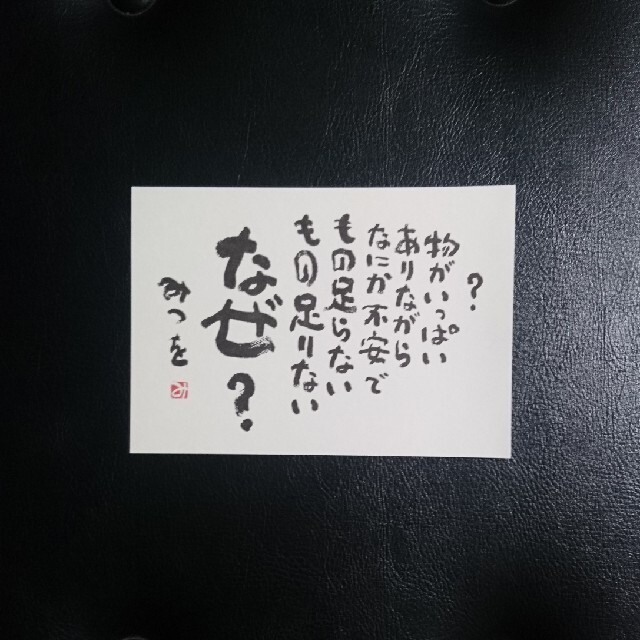 ?
物がいっぱい
ありながら
なにか不安で
もの足らない
もの足りない
なぜ?
みつを